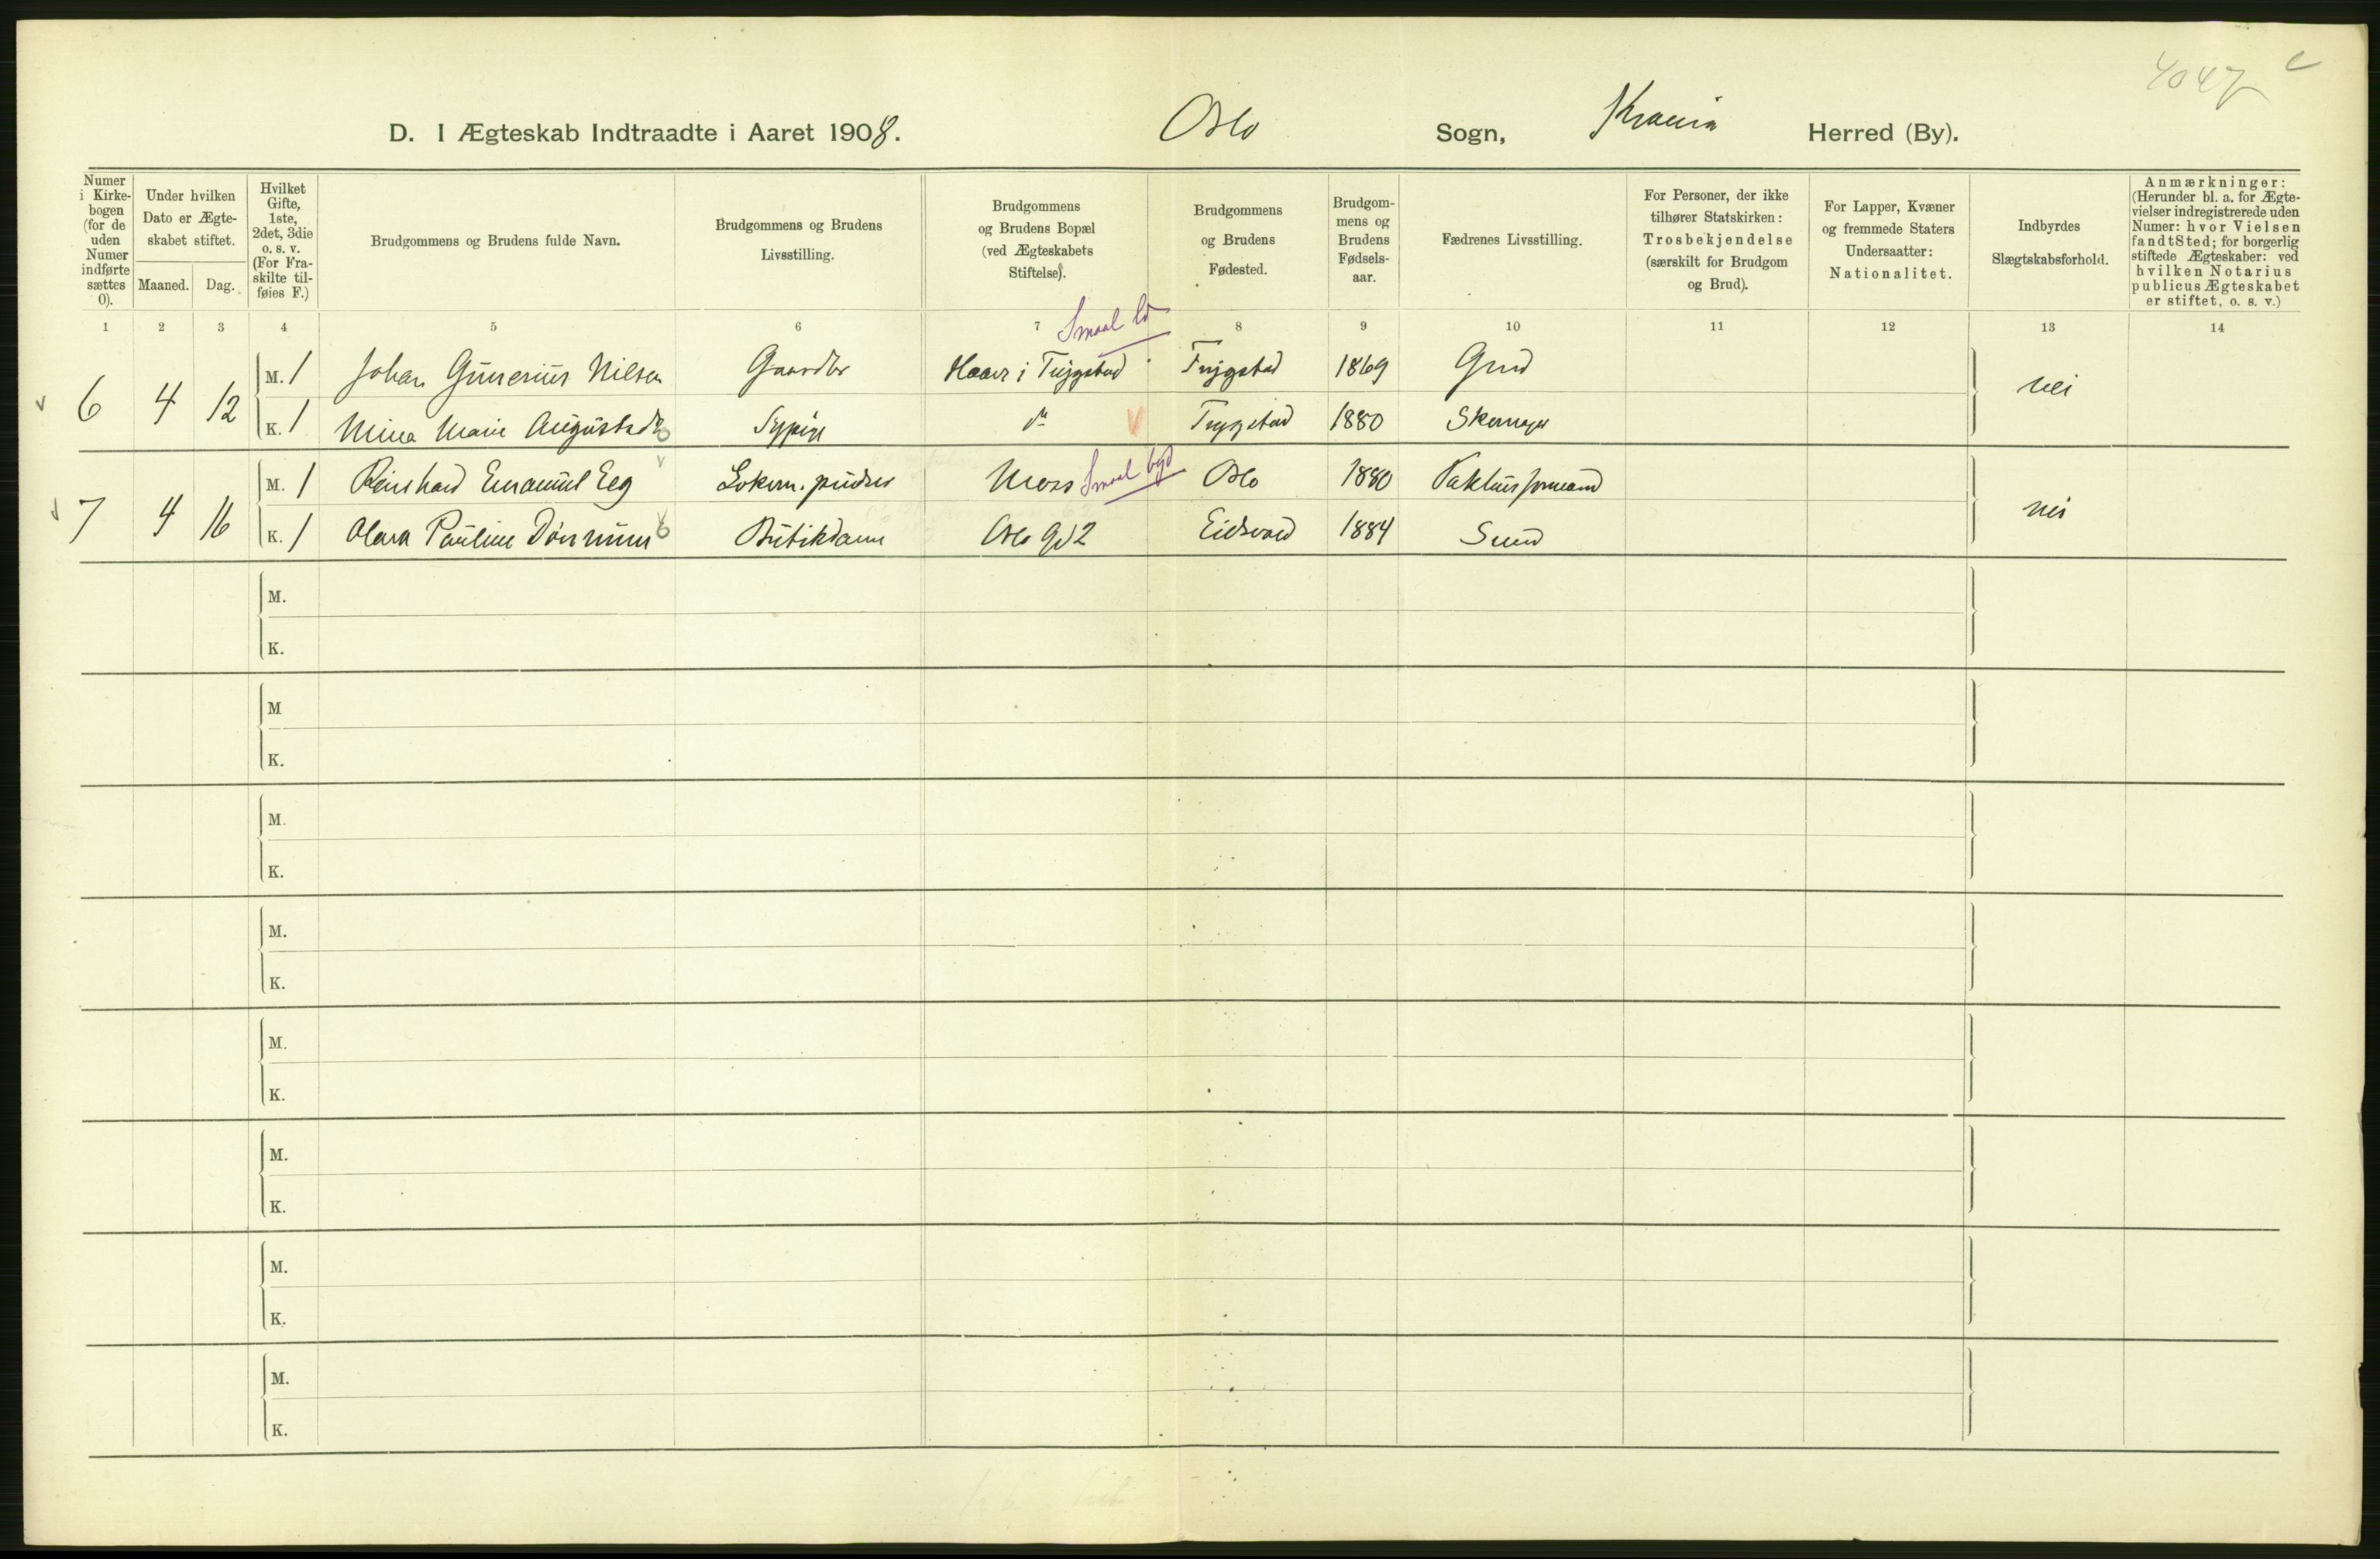 4047
D. I Ægteskab Indtraadte i Aaret 1908. Oslo Sogn, Krania Herred (By).
Numer i Kirkebogen (for de uden Numer indførte sættes 0).
Under hvilken Dato er Ægteskabet stiftet.
Maaned. Dag.
Hvilket Gifte, 1ste, 2det, 3die o. s. v. (For Fraskilte tilføies F.)
Brudgommens og Brudens fulde Navn.
Brudgommens og Brudens Livsstilling.
Brudgommens og Brudens Bopæl (ved Ægteskabets Stiftelse).
Brudgommens og Brudens Fødested.
Brudgommens og Brudens Fødselsaar.
Fædrenes Livsstilling.
For Personer, der ikke tilhører Statskirken: Trosbekjendelse (særskilt for Brudgom og Brud).
For Lapper, Kvæner og fremmede Staters Undersaatter: Nationalitet.
Indbyrdes Slægtskabsforhold.
Anmærkninger: (Herunder bl. a. for Ægtevielser indregistrerede uden Numer: hvor Vielsen fandt Sted; for borgerlig stiftede Ægteskaber: ved hvilken Notarius publicus Ægteskabet er stiftet, o. s. v.)
1 2 3 4 5 6 7 8 9 10 11 12 13 14
Smaal
6 4 12 M. 1 Johan Gunerius Nilsen Gaardbr Haaer i Trygstad Trygstad 1869 Grd nei
K. 1 Mina Marie Augustad Sypige Trygstad 1880 Skomager
7 4 16 M. 1 Reinhard Emanuel Eeg Lokom. pudser Moss Smaal Oslo 1880 Pakhusformand nei
K. 1 Olava Pauline Dønnum Butikdame Oslo gd 2 Eidsvold 1884 Smed
M.
K.
M
K.
M.
K.
M.
K.
M.
K.
M.
K.
M.
K.
M.
K.